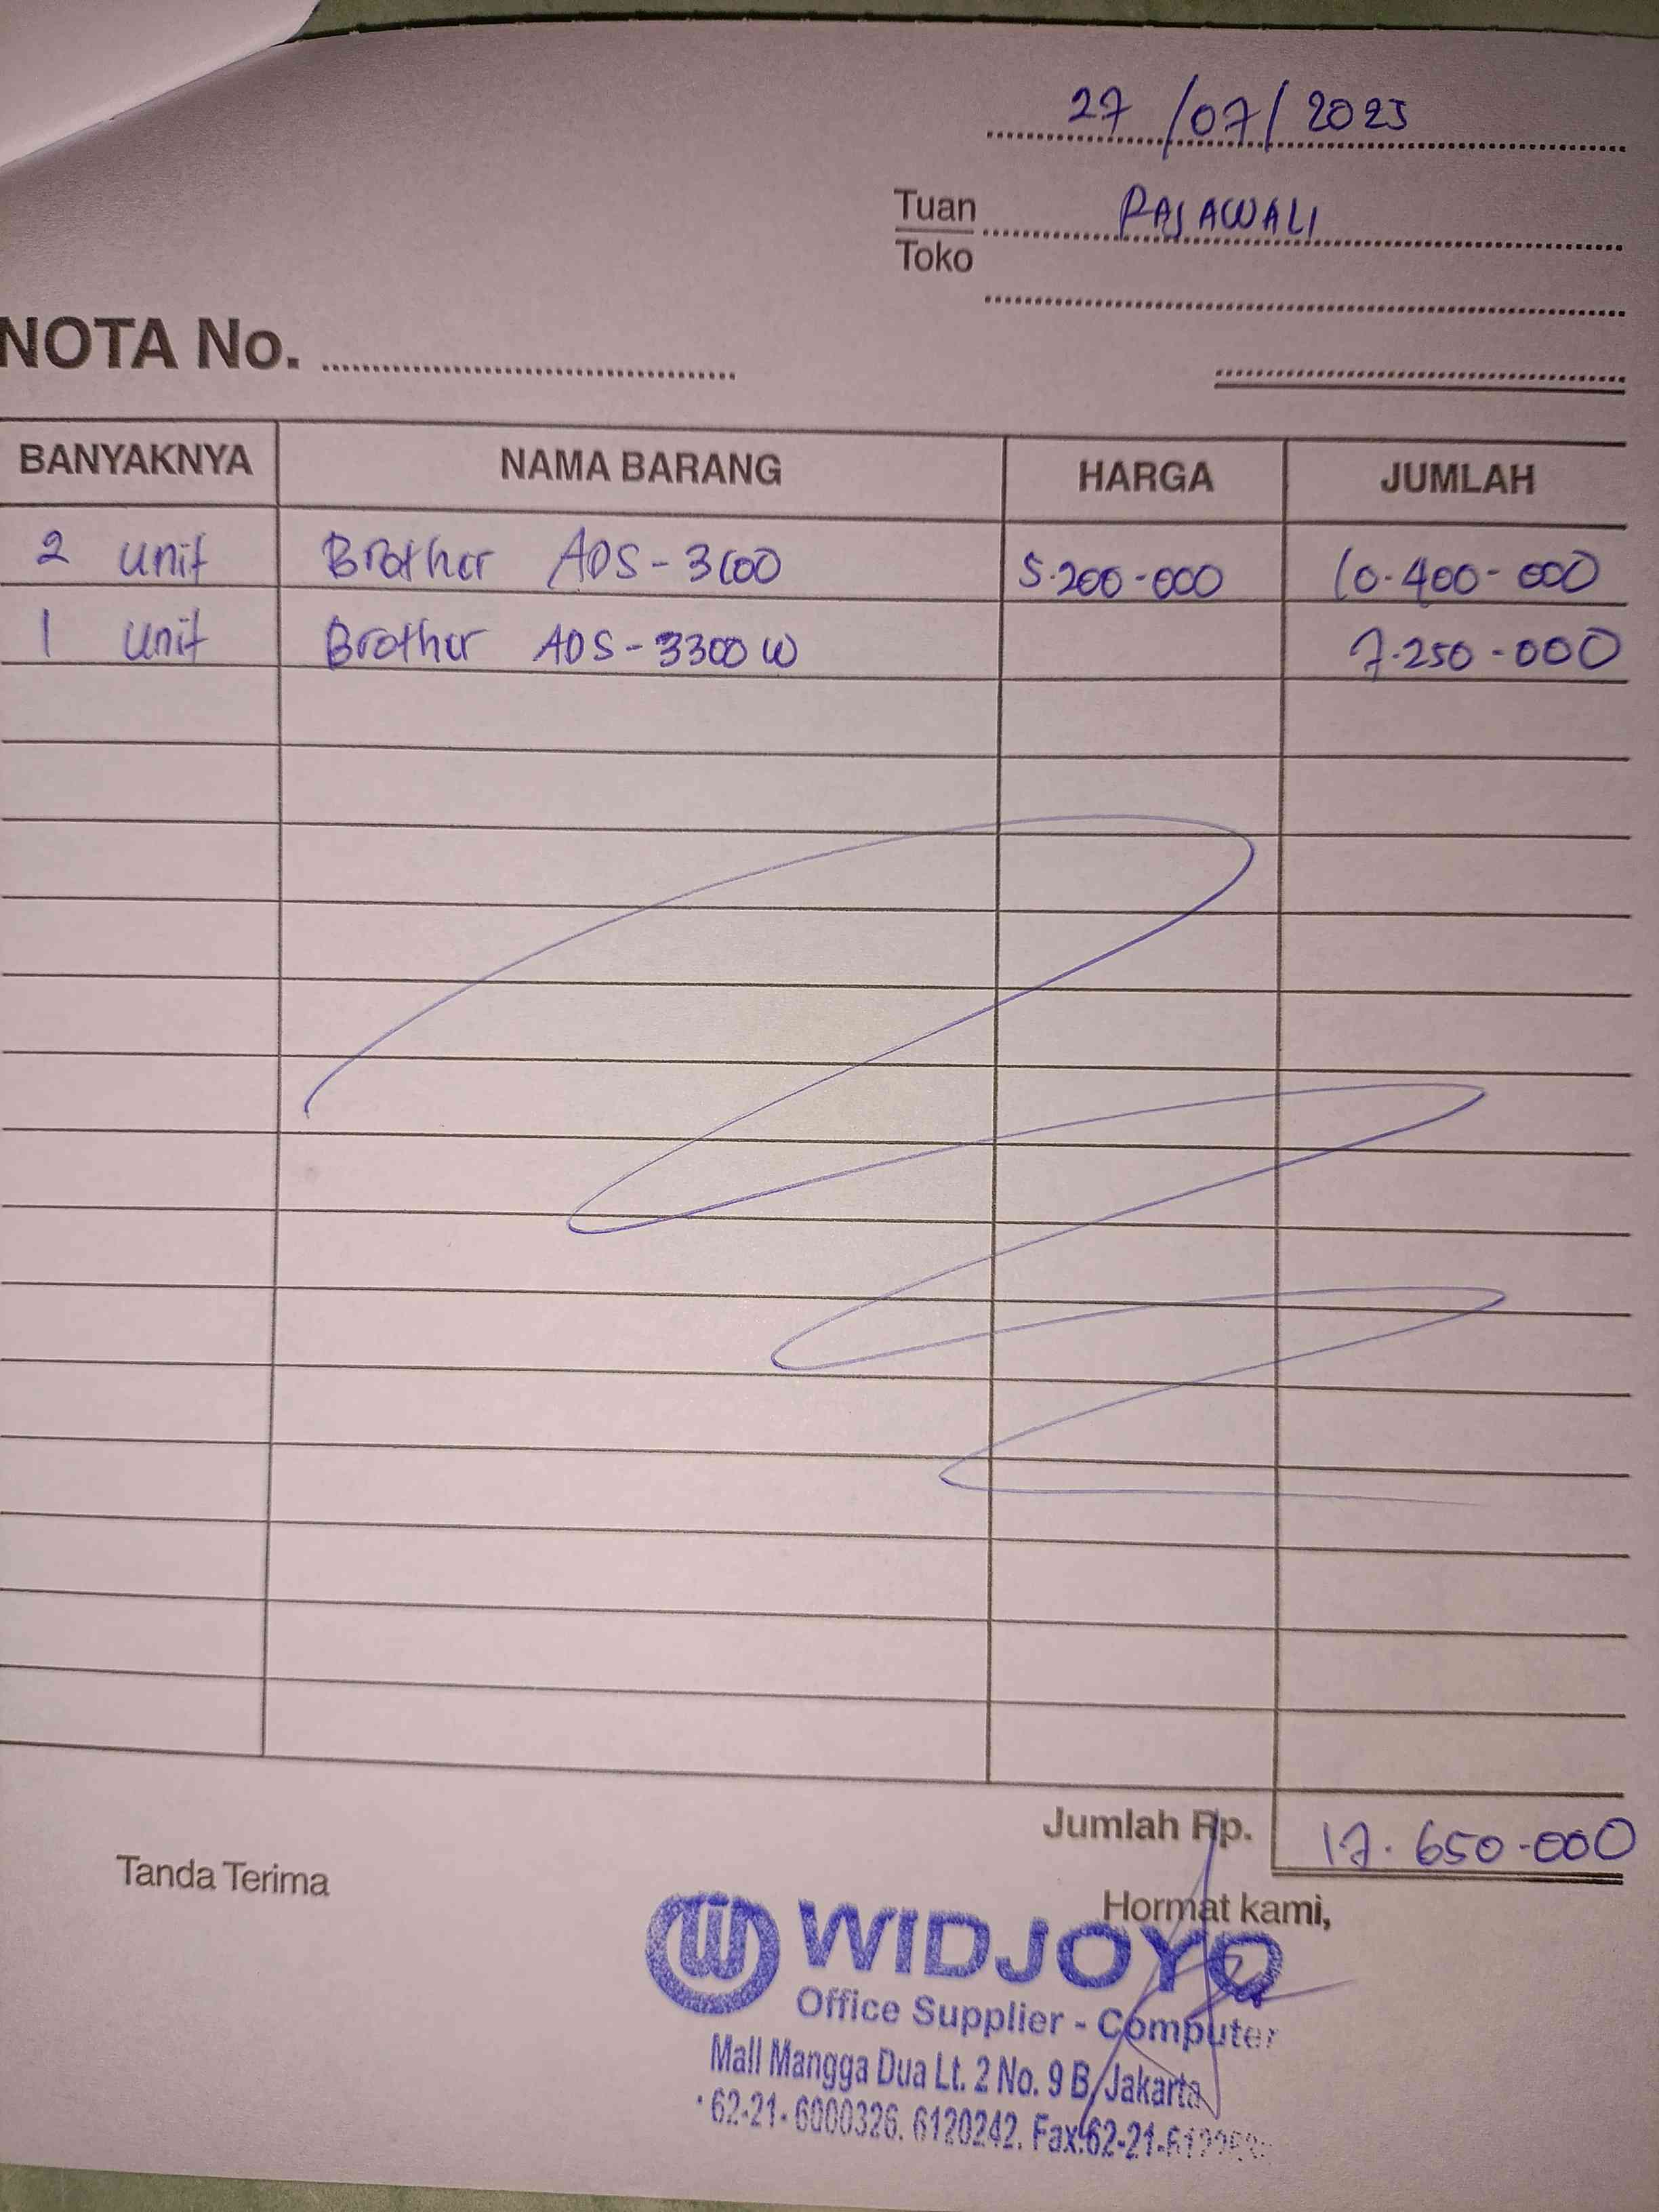 27/07/2025
Tuan RAJAWALI
Toko
NOTA No.
BANYAKNYA NAMA BARANG HARGA JUMLAH
2 unit Brother ADS-3100 5.200-000 10.400-000
1 unit Brother ADS-3300 W 7.250-000
Jumlah Rp. 17.650-000
Tanda Terima
Hormat kami,
WIDJOYO
Office Supplier - Computer
Mall Mangga Dua Lt. 2 No. 9 B, Jakarta
62-21-6000326. 6120242. Fax:62-21-